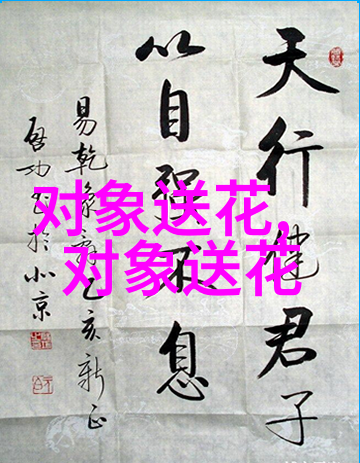 天行健君子
以自强不息
易乾象辞乙亥新正
启功书于北京
对象送花,
对象送花